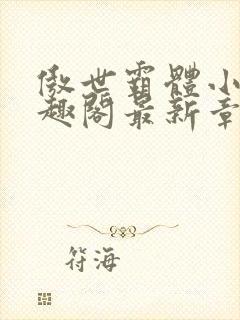 傲世霸體小
趣閣最新章
符海